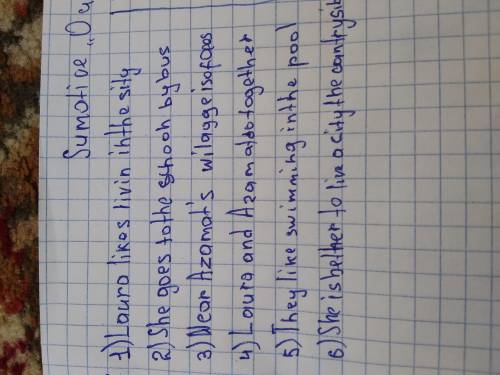 Sumotive „Our
1) Laura likes livin inthe sity
2) She goes to the school by bus
3) Near Azamat's wilagge is
4) Laura and Azamat do together
5) They like swimming in the pool
6) She is better to live a city the cantrysib